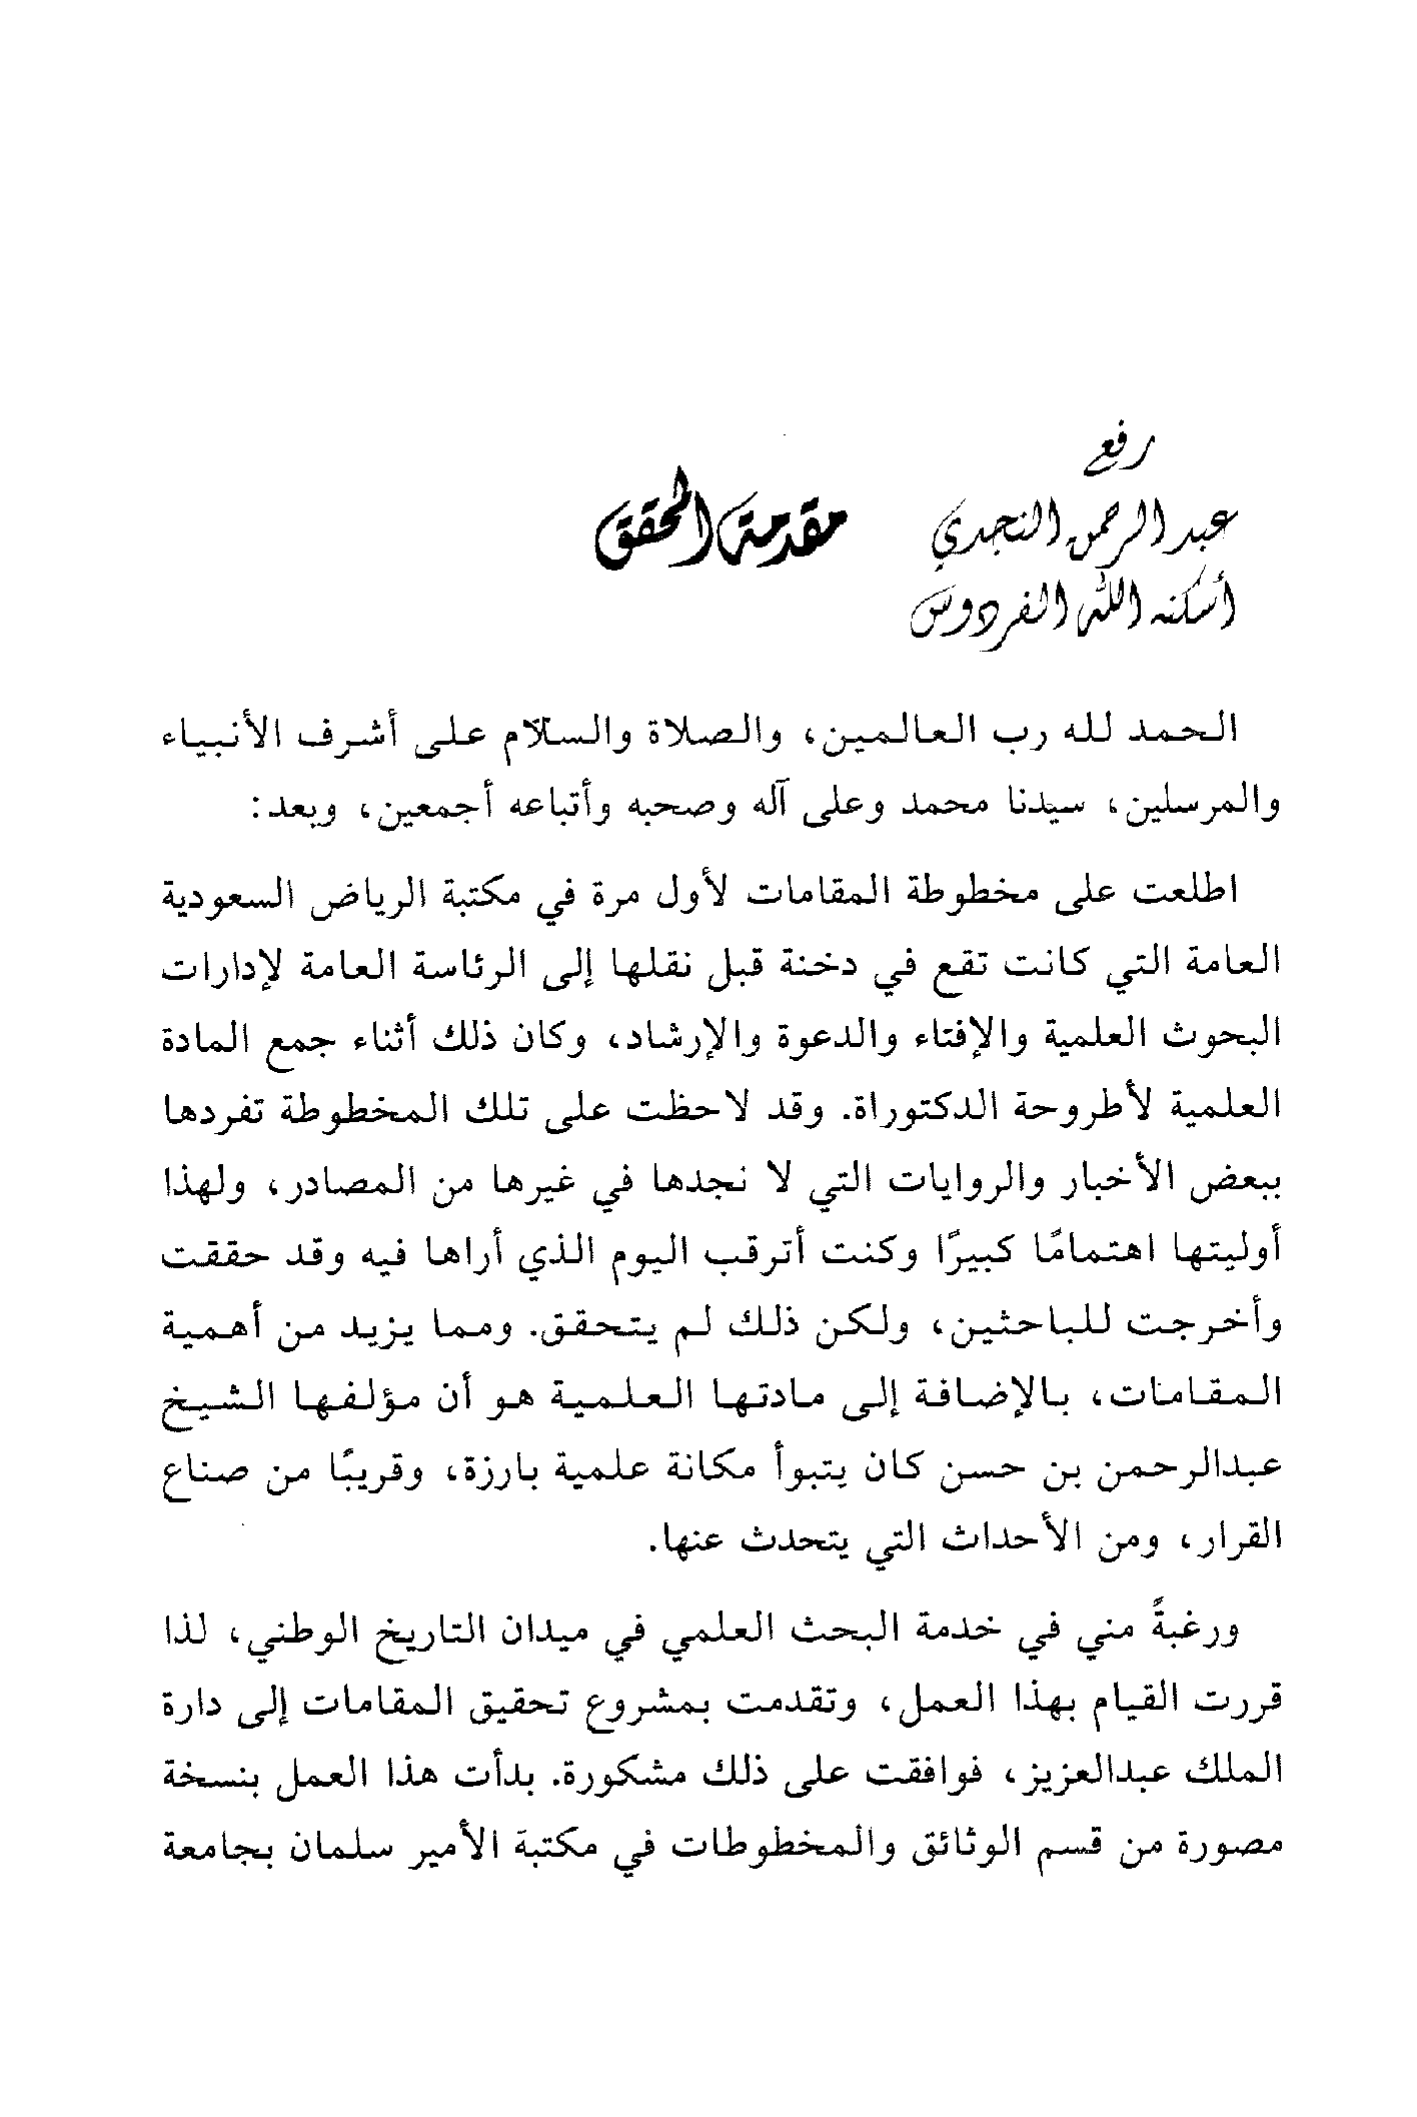 رفع
عبد الرحمن النجدي
أسكنه الله الفردوس
مقدمة المحقق
الحمد لله رب العالمين، والصلاة والسلام على أشرف الأنبياء
والمرسلين، سيدنا محمد وعلى آله وصحبه وأتباعه أجمعين، وبعد:
اطلعت على مخطوطة المقامات لأول مرة في مكتبة الرياض السعودية
العامة التي كانت تقع في دخنة قبل نقلها إلى الرئاسة العامة لإدارات
البحوث العلمية والإفتاء والدعوة والإرشاد، وكان ذلك أثناء جمع المادة
العلمية لأطروحة الدكتوراة. وقد لاحظت على تلك المخطوطة تفردها
ببعض الأخبار والروايات التي لا نجدها في غيرها من المصادر، ولهذا
أوليتها اهتمامًا كبيرًا وكنت أترقب اليوم الذي أراها فيه وقد حققت
وأخرجت للباحثين، ولكن ذلك لم يتحقق. ومما يزيد من أهمية
المقامات، بالإضافة إلى مادتها العلمية هو أن مؤلفها الشيخ
عبدالرحمن بن حسن كان يتبوأ مكانة علمية بارزة، وقريبًا من صناع
القرار، ومن الأحداث التي يتحدث عنها.
ورغبةً مني في خدمة البحث العلمي في ميدان التاريخ الوطني، لذا
قررت القيام بهذا العمل، وتقدمت بمشروع تحقيق المقامات إلى دارة
الملك عبدالعزيز، فوافقت على ذلك مشكورة. بدأت هذا العمل بنسخة
مصورة من قسم الوثائق والمخطوطات في مكتبة الأمير سلمان بجامعة